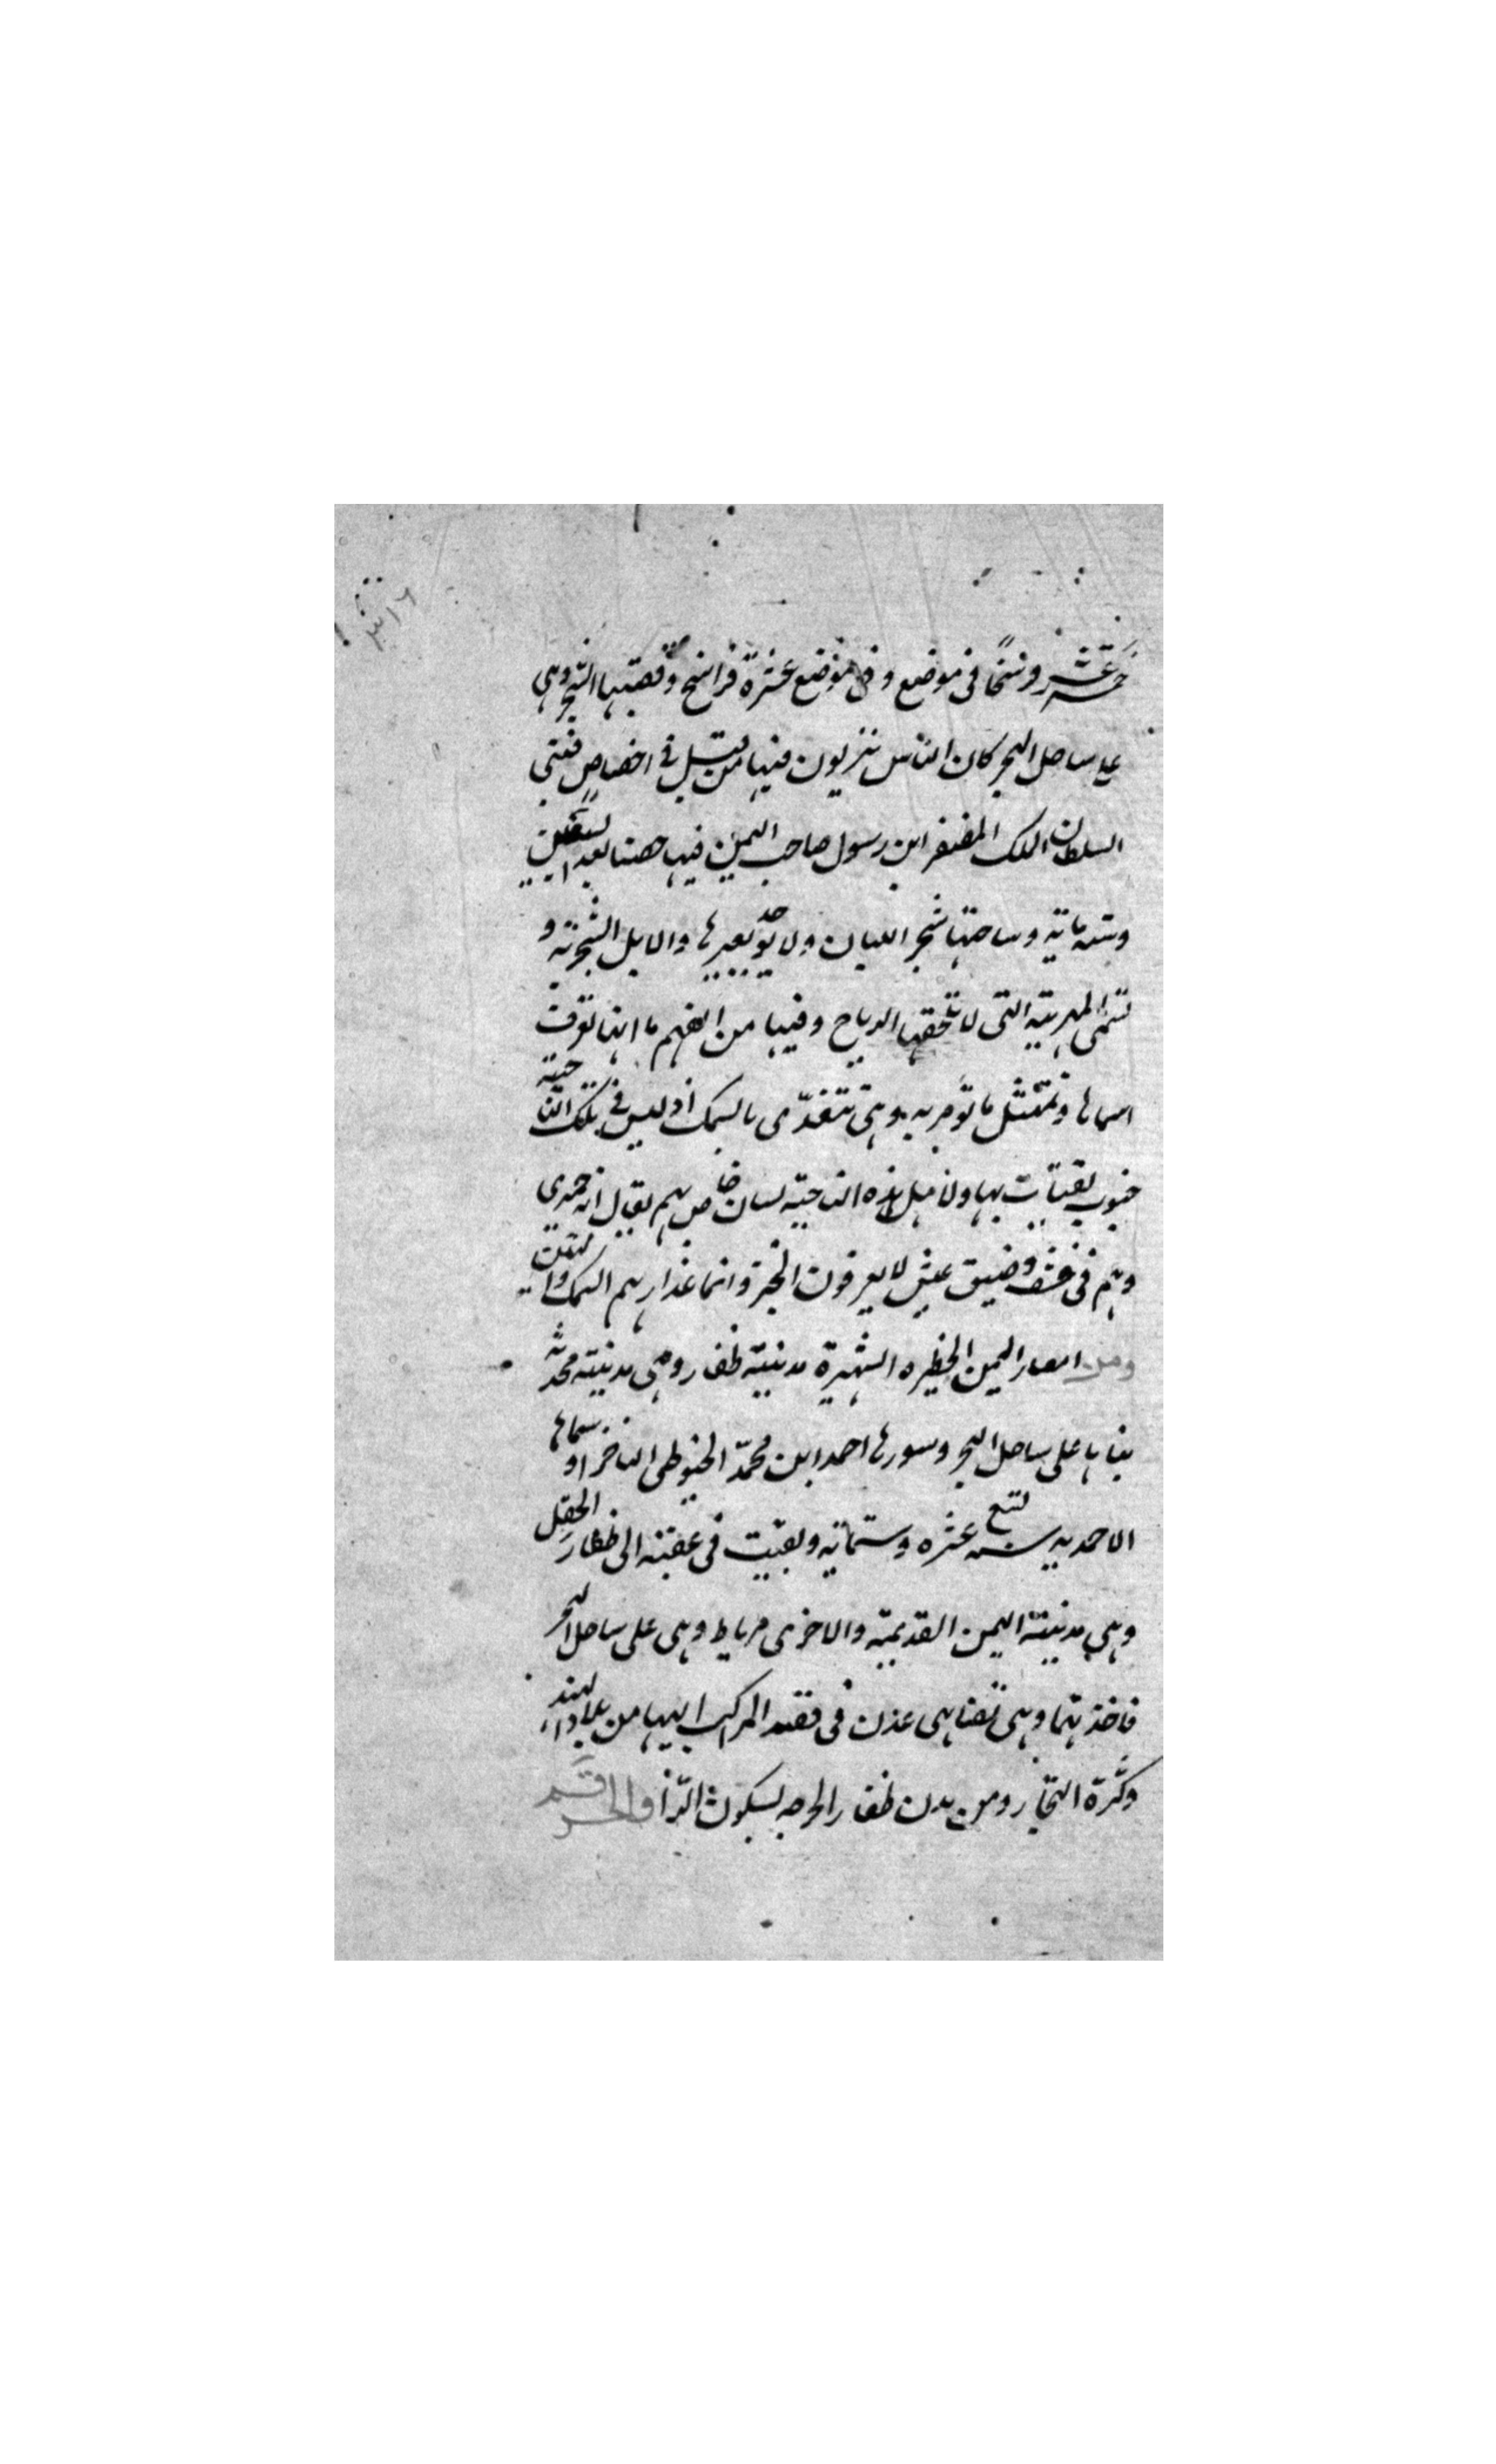 خمسة عشر فرسخًا فى موضع وفى موضع عشرة فراسخ وقصبتها الشحر وهى
على ساحل البحر كان الناس ينزلون فيها من قبل فى اخصاص فبنى
السلطان الملك المظفر ابن رسول صاحب اليمن فيها حصنا بعد السبعين
وستمايه وساحتها شجر اللبان ولا يوجد بغيرها والابل الشجرية و
تسمى المهرية التى لا تلحقها الرياح وفيها من الفهم ما انها تعرف
اسماها وتمتثل ما تومر به وهى تتغذى بالسمك اذ ليس فى تلك الناحية
حبوب يقتات بها ولاهل هذه الناحية لسان خاص بهم يقال انه حميرى
وهم فى قشف وضيق عيش لا يعرفون الخبز وانما غذاوهم السمك والتمر
ومن امصار اليمن الخطيره الشهيرة مدينة ظفار وهى مدينة محدثه
بناها على ساحل البحر وسورها احمد ابن محمد الحبوظى الناخر او سماها
الاحمديه سنه تسع عشره وستمايه وبقيت فى عقبه الى ظفار الحقل
وهى مدينة اليمن القديمة والاخرى مرباط وهى على ساحل البحر
فاخذ بتما وهى تضاهى عدن فى قصد المراكب اليها من بلاد الهند
وكثرة التجار ومن مدن ظفار الحرجه بسكون الرا